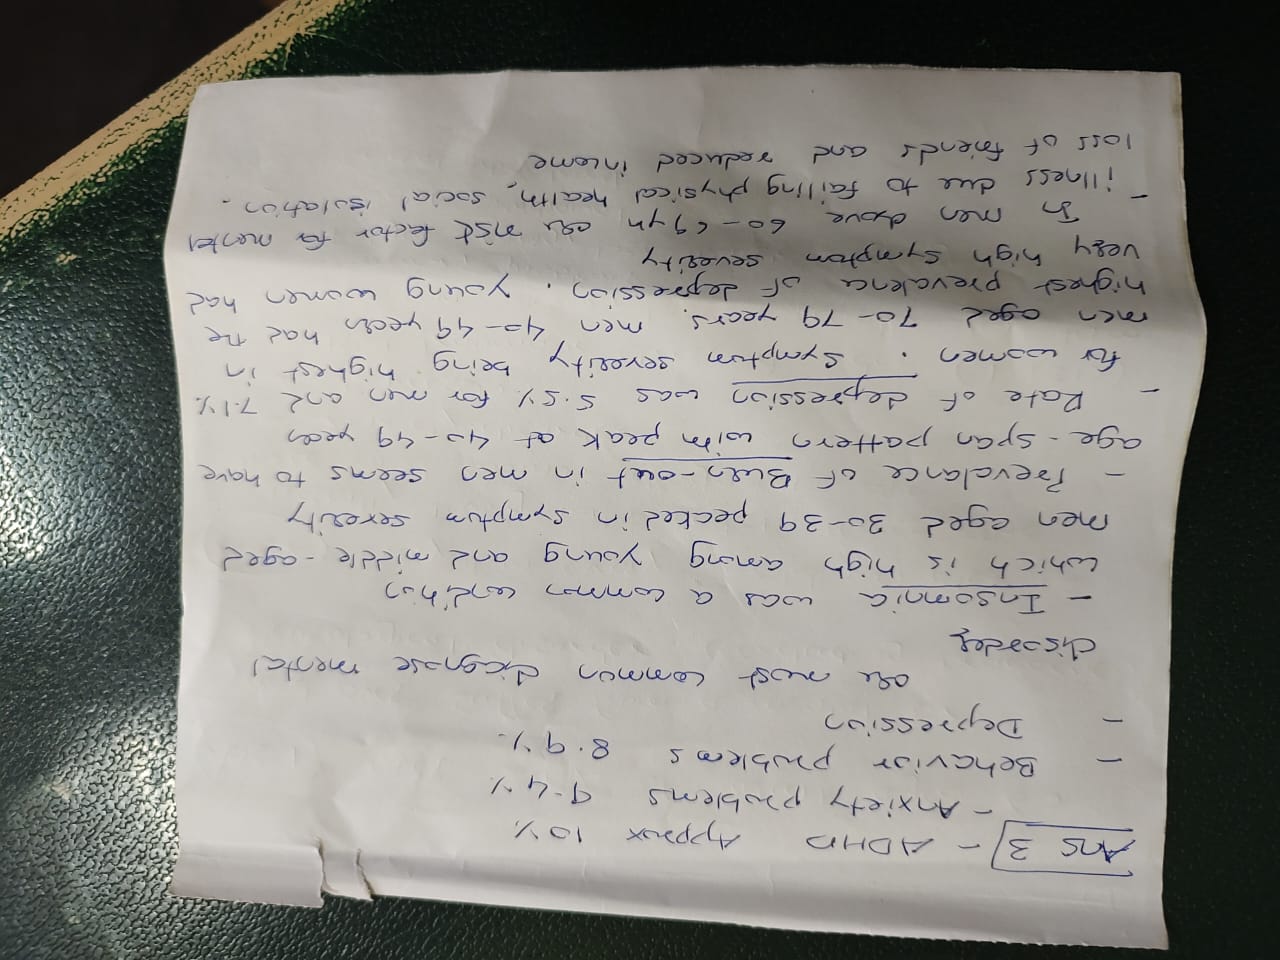 Ans 3 - ADHD Approx 10%
- Anxiety problems 9.4%
- Behavior problems 8.9%.
- Depression
are most common diagnose mental
disorder
- Insomnia was a common condition
which is high among young and middle-aged
men aged 30-39 peaked in symptom severity
- Prevalance of Burn-out in men seems to have
age-span pattern with peak at 40-49 years
- Rate of depression was 5.5% for men and 7.1%
for women. Symptom severity being highest in
men aged 70-79 years. men 40-49 years had the
highest prevalence of depression. young women had
very high symptom severity
In men above 60-69 yr are risk factor for mental
- illness due to failing physical health, social isolation.
loss of friends and reduced income